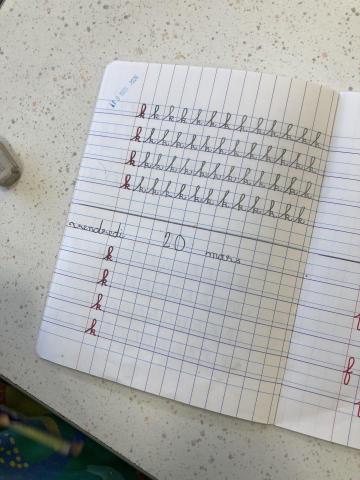 k k k k k k k k k k k k k k
k k k k k k k k k k k k k k
k k k k k k k k k k k k k k
k k k k k k k k k k k k k
vendredi 20 mars
k
k
k
k
f